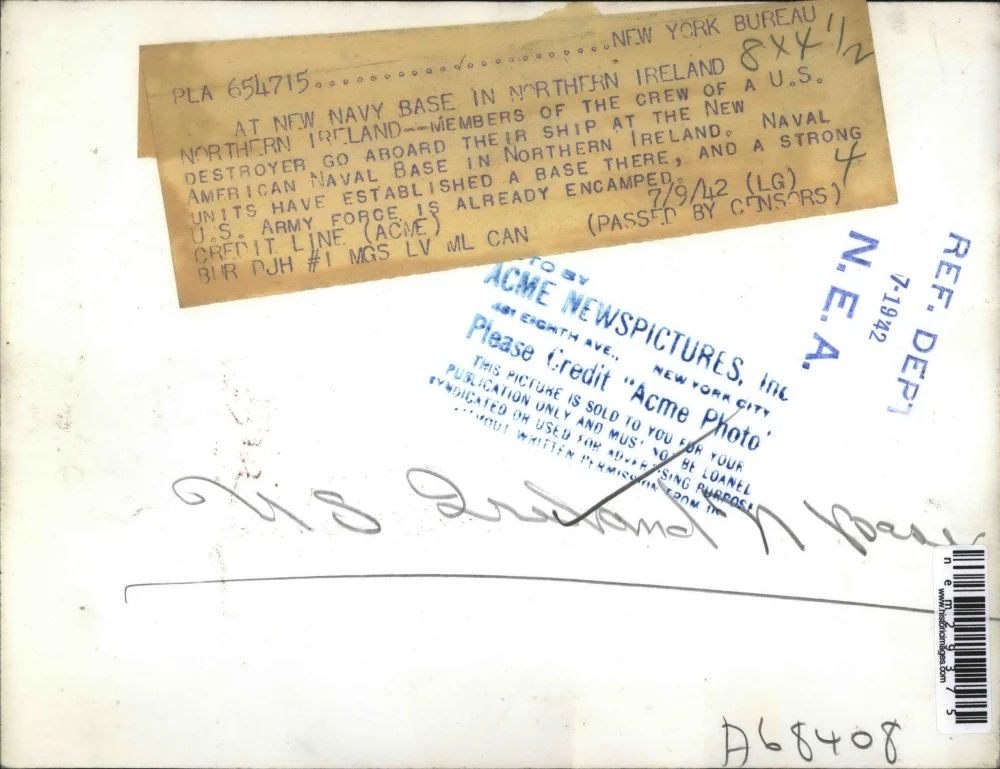 PLA 654715..................../...............NEW YORK BUREAU
8x4 1/2
AT NEW NAVY BASE IN NORTHERN IRELAND
NORTHERN IRELAND--MEMBERS OF THE CREW OF A U.S.
DESTROYER GO ABOARD THEIR SHIP AT THE NEW
AMERICAN NAVAL BASE IN NORTHERN IRELAND. NAVAL
UNITS HAVE ESTABLISHED A BASE THERE, AND A STRONG
U.S. ARMY FORCE IS ALREADY ENCAMPED.
4
CREDIT LINE (ACME) 7/9/42 (LG)
BUR DJH #1 MGS LV ML CAN (PASSED BY CENSORS)
TO BY
ACME NEWSPICTURES, Inc
461 EIGHTH AVE., NEW YORK CITY
Please Credit "Acme Photo"
THIS PICTURE IS SOLD TO YOU FOR YOUR
PUBLICATION ONLY AND MUST NOT BE LOANED
SYNDICATED OR USED FOR ADVERTISING PURPOSES
WITHOUT WRITTEN PERMISSION FROM
REF. DEPT
7-1942
N.E.A.
US Ireland N Base
nem29375
www.historicimages.com
A68408